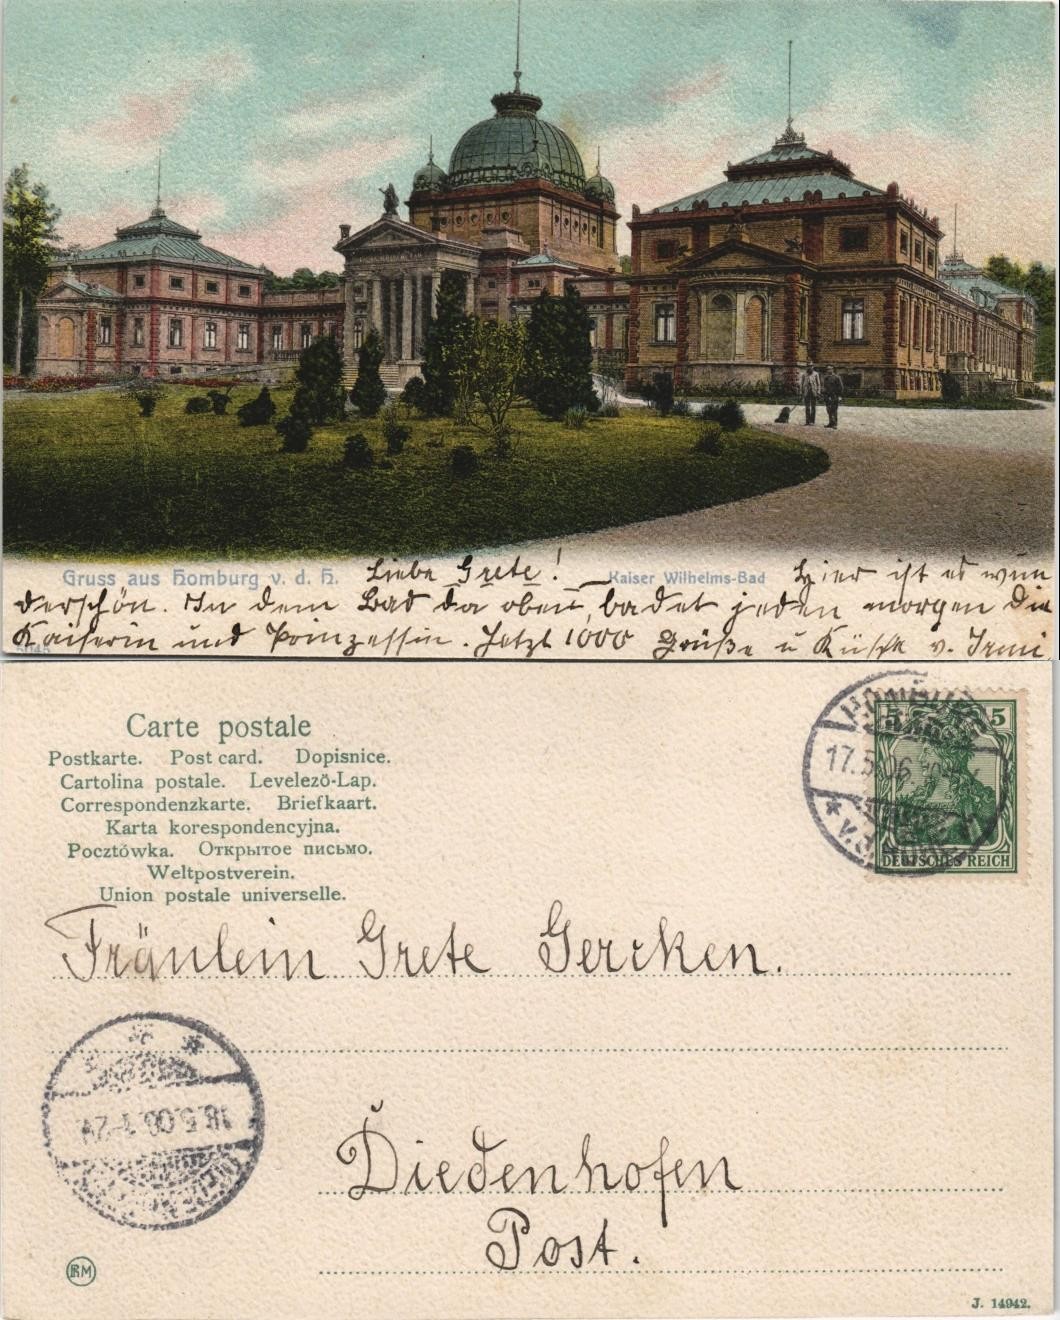 Gruss aus Homburg v. d. H.
Kaiser Wilhelms-Bad
Liebe Grete! Hier ist es wun
derschön. In dem Bad da oben badet jeden morgen die
Kaiserin und Prinzessin. Jetzt 1000 Grüße u Küsse v. Irmi
Carte postale
Postkarte. Post card. Dopisnice.
Cartolina postale. Levelezö-Lap.
Correspondenzkarte. Briefkaart.
Karta korespondencyjna.
Pocztówka. Открытое письмо.
Weltpostverein.
Union postale universelle.
HOMBURG
17.5.06.
v.d.
5 5
DEUTSCHES REICH
Fräulein Grete Gercken.
18.5.06.
Diedenhofen
Post.
RM
J. 14942.